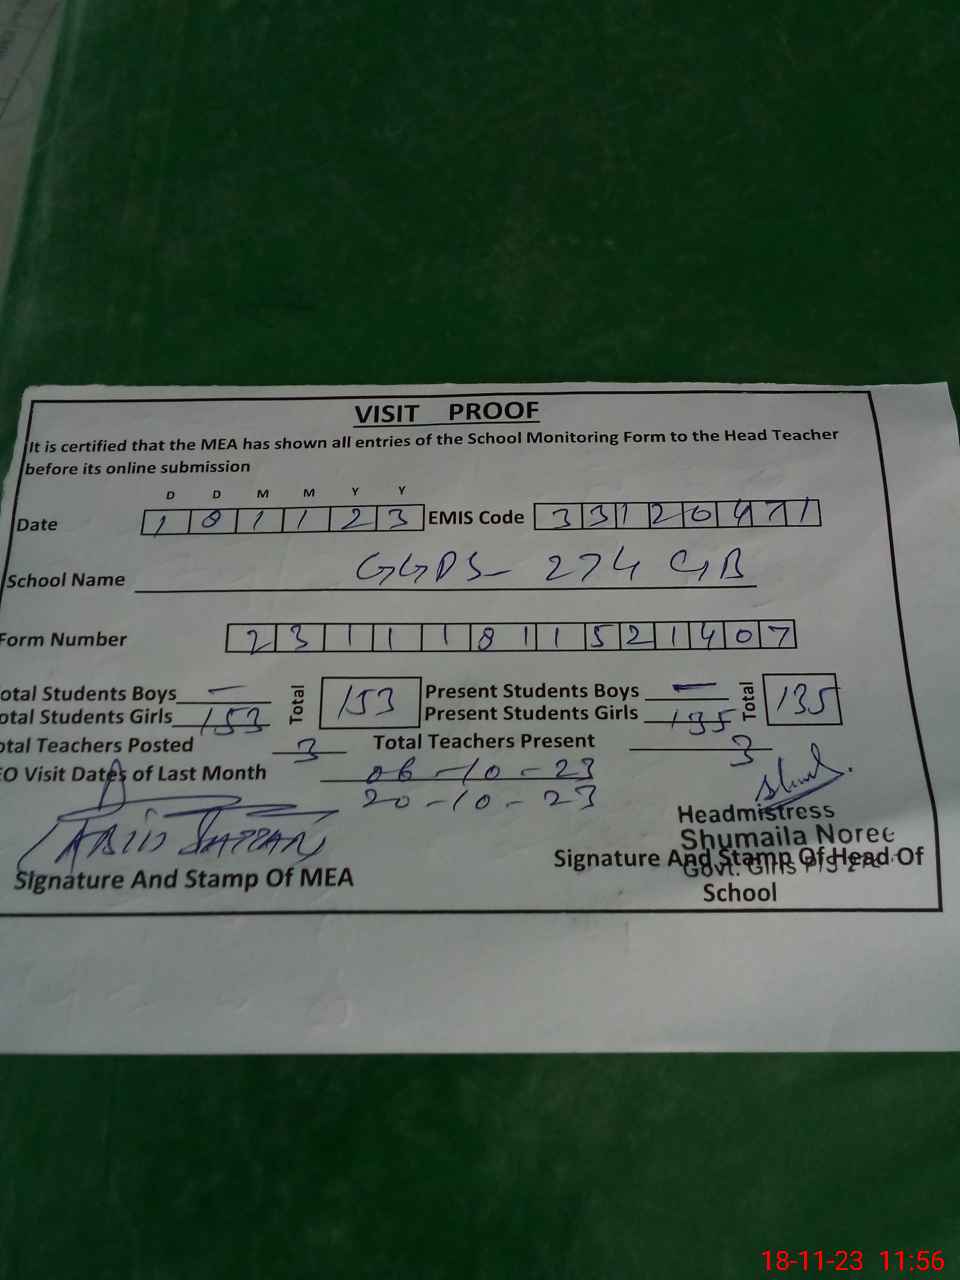 VISIT PROOF
It is certified that the MEA has shown all entries of the School Monitoring Form to the Head Teacher
before its online submission
D D M M Y Y
Date 1 8 1 1 2 3 EMIS Code 3 3 1 2 0 4 7 1
School Name GGPS- 274 GB
Form Number 2 3 1 1 1 8 1 1 5 2 1 4 0 7
otal Students Boys — Total 153 Present Students Boys — Total 135
otal Students Girls 153 Present Students Girls 135
otal Teachers Posted 3 Total Teachers Present 3
EO Visit Dates of Last Month 06-10-23
20-10-23
Headmistress
Shumaila Noree
Signature And Stamp Of Head Of
Govt. Girls P/S
School
Signature And Stamp Of MEA
18-11-23 11:56